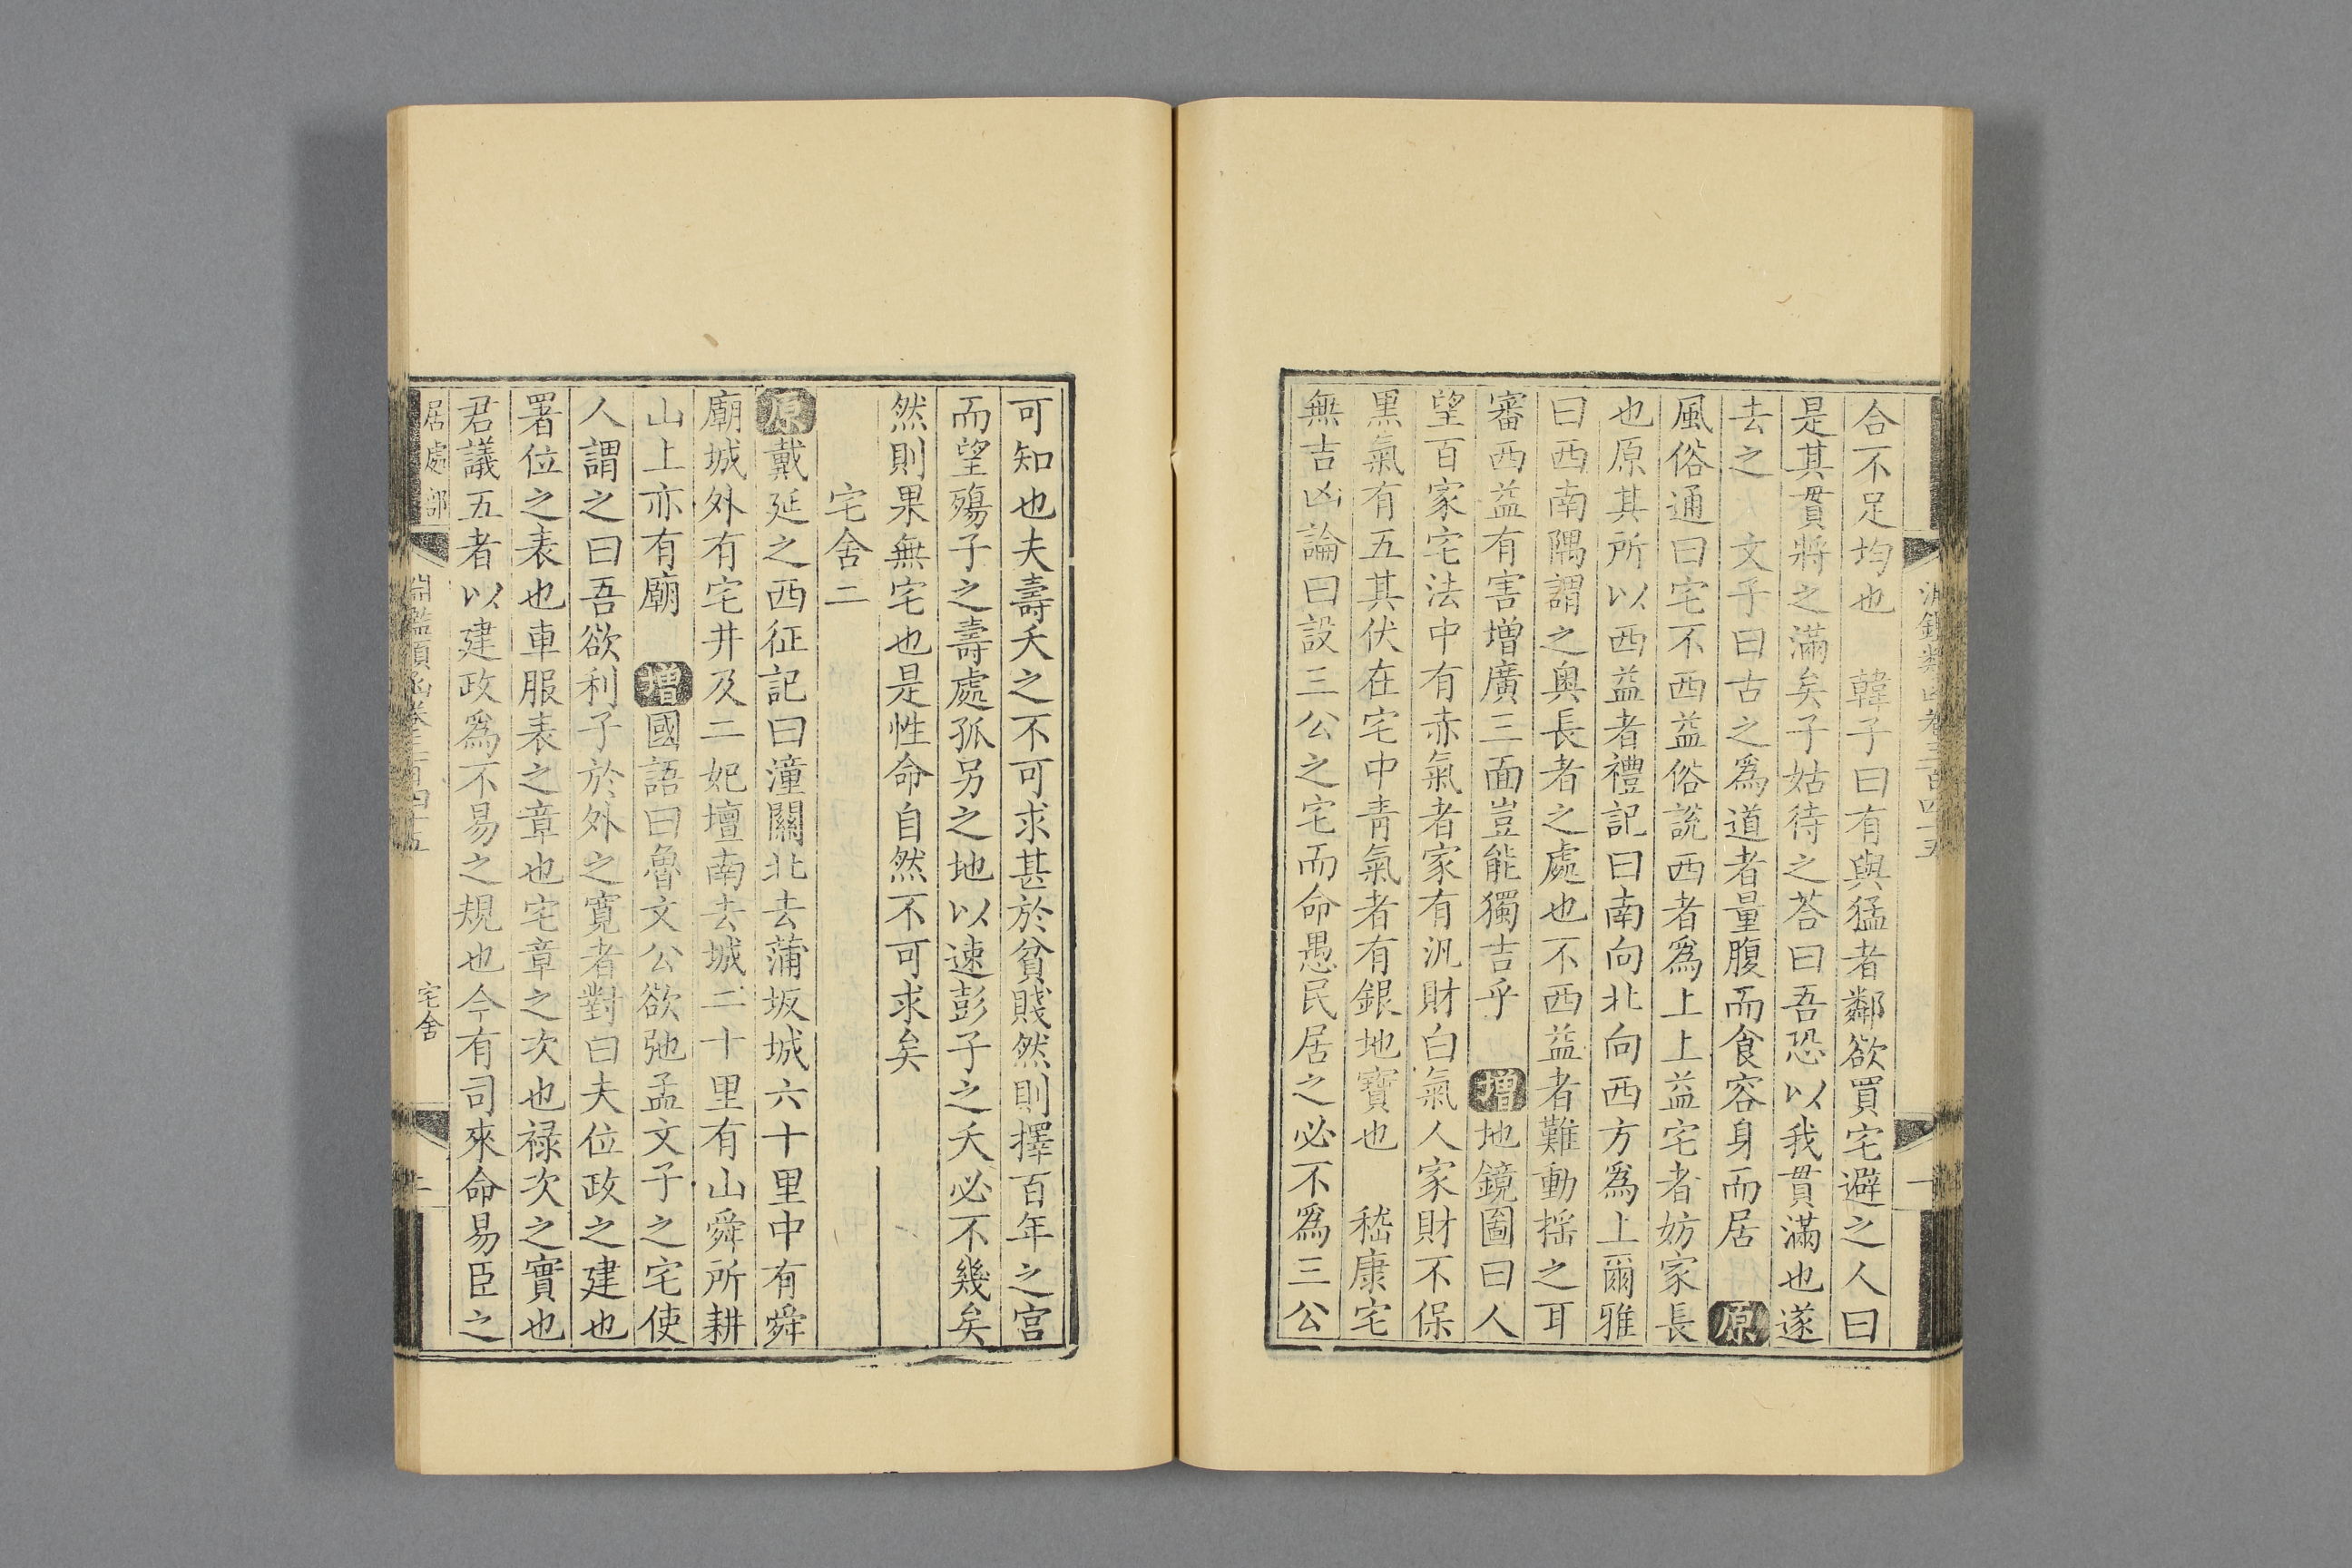 合不足均也　韓子曰有與猛者鄰欲買宅避之人曰
是其貫將之滿矣子姑待之荅曰吾恐以我貫滿也遂
去之　文子曰古之爲道者量腹而食容身而居　原
風俗通曰宅不西益俗說西者爲上上益宅者妨家長
也原其所以西益者禮記曰南向北向西方爲上爾雅
曰西南隅謂之奧長者之處也不西益者難動摇之耳
審西益有害增廣三面豈能獨吉乎　增地鏡圖曰人
望百家宅法中有赤氣者家有汎財白氣人家財不保
黑氣有五其伏在宅中青氣者有銀地寶也　嵇康宅
無吉凶論曰設三公之宅而命愚民居之必不爲三公
可知也夫壽夭之不可求甚於貧賤然則擇百年之宫
而望殤子之壽處孤另之地以速彭子之夭必不幾矣
然則果無宅也是性命自然不可求矣
宅舍二
原戴延之西征記曰潼關北去蒲坂城六十里中有舜
廟城外有宅井及二妃壇南去城二十里有山舜所耕
山上亦有廟　增國語曰魯文公欲弛孟文子之宅使
人謂之曰吾欲利子於外之寬者對曰夫位政之建也
署位之表也車服表之章也宅章之次也禄次之實也
君議五者以建政爲不易之規也今有司來命易臣之
居處部　淵鑑類函卷三百四十五　宅舍　二